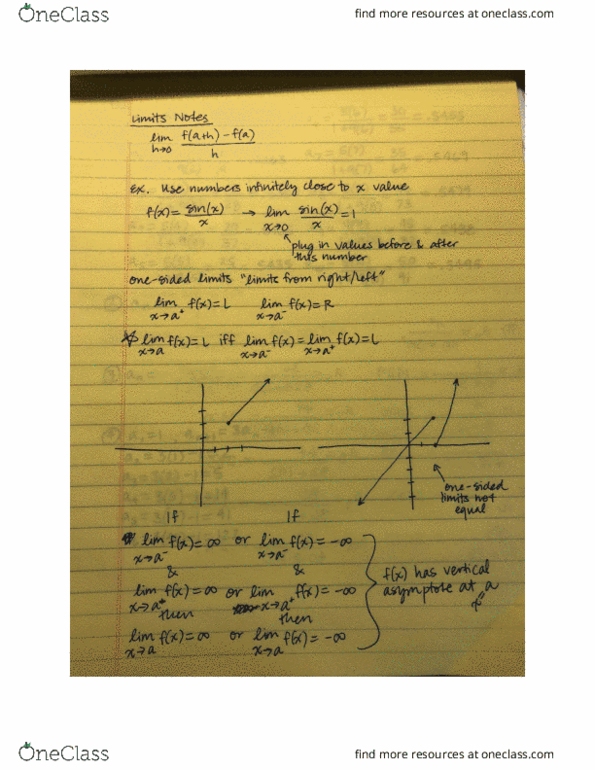 OneClass
find more resources at oneclass.com
Limits Notes
lim h→0 f(a+h) - f(a) / h
Ex. Use numbers infinitely close to x value
f(x) = sin(x)/x → lim x→0 sin(x)/x = 1
plug in values before & after
this number
one-sided limits "limits from right/left"
lim x→a⁺ f(x) = L lim x→a⁻ f(x) = R
lim x→a f(x) = L iff lim x→a⁻ f(x) = lim x→a⁺ f(x) = L
one-sided
limits not
equal
If If
lim x→a⁻ f(x) = ∞ or lim x→a⁻ f(x) = -∞
& &
lim x→a⁺ f(x) = ∞ or lim x→a⁺ f(x) = -∞
then then
lim x→a f(x) = ∞ or lim x→a f(x) = -∞
f(x) has vertical
asymptote at a
OneClass
find more resources at oneclass.com